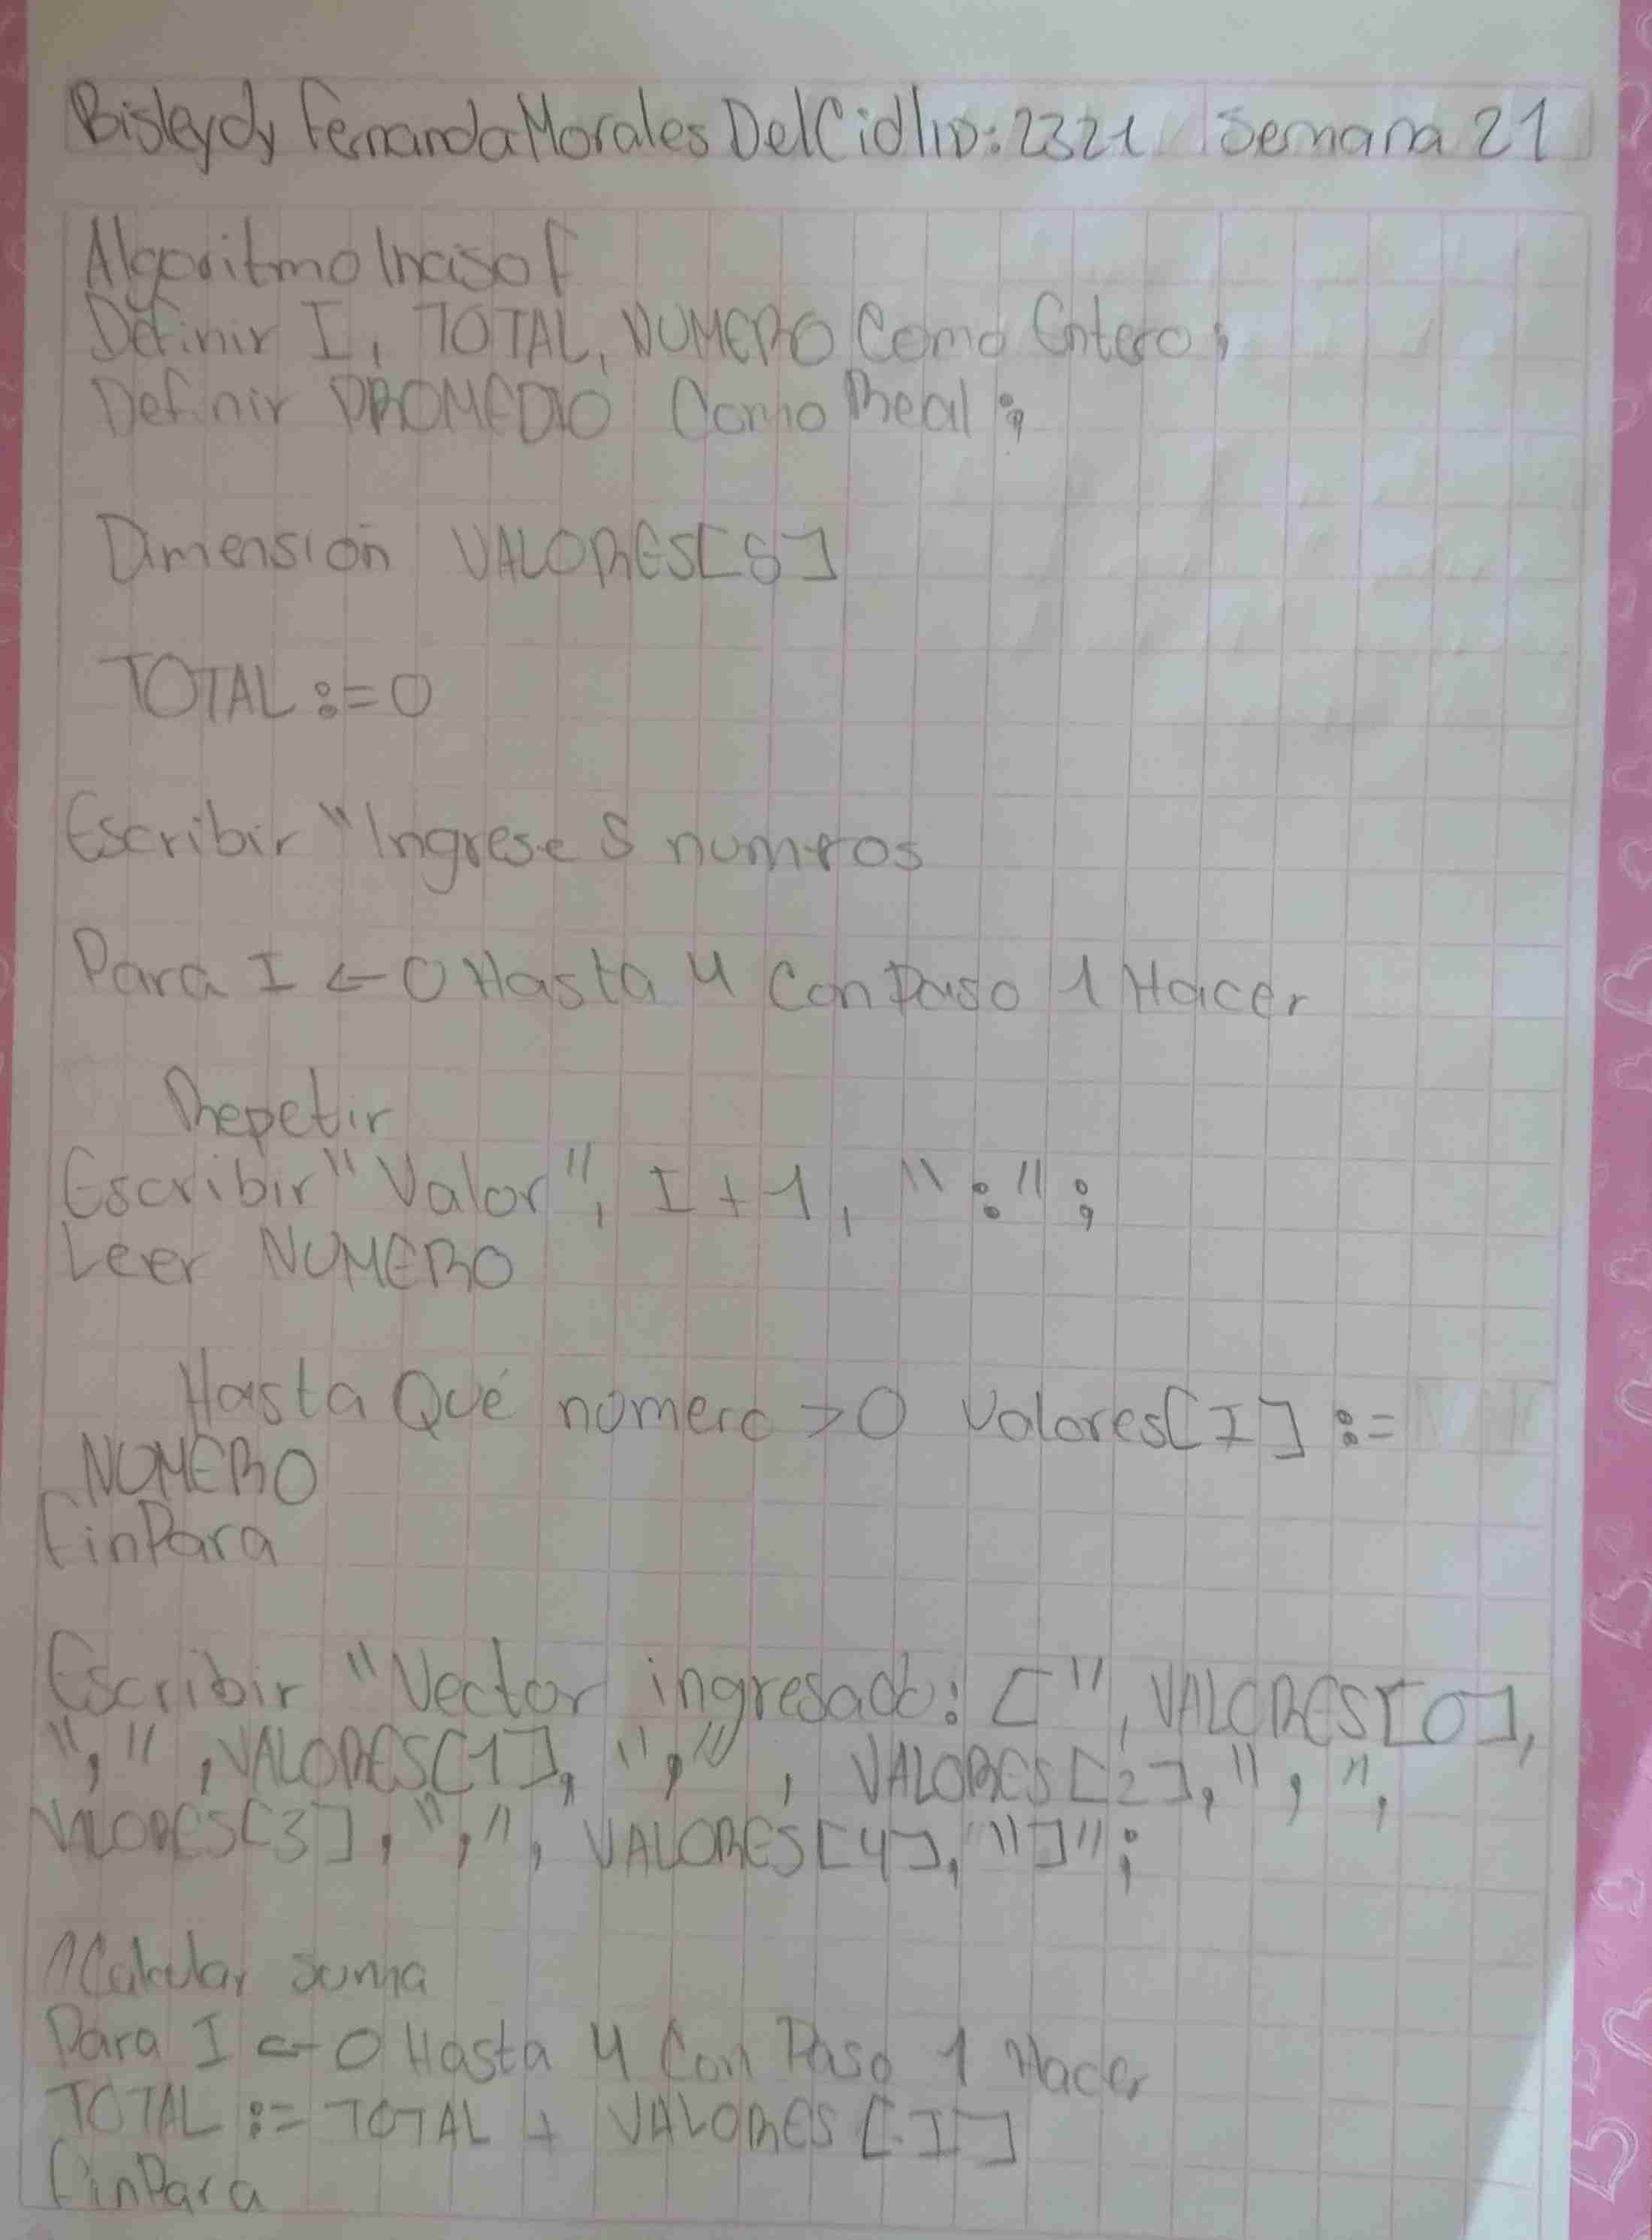 Bisleydy Fernanda Morales Del Cid | ID: 2321 Semana 21
Algoritmo Inciso f
Definir I, TOTAL, NUMERO Como Entero;
Definir PROMEDIO Como Real;
Dimensión VALORES[5]
TOTAL := 0
Escribir "Ingrese 5 numeros
Para I ← 0 Hasta 4 Con Paso 1 Hacer
Repetir
Escribir "Valor", I + 1, ":";
Leer NUMERO
Hasta Qué número > 0 Valores[I] :=
NUMERO
FinPara
Escribir "Vector ingresado: [", VALORES[0],
",", VALORES[1], ",", VALORES[2], ",",
VALORES[3], ",", VALORES[4], "]";
//Calcular suma
Para I ← 0 Hasta 4 Con Paso 1 Hacer
TOTAL := TOTAL + VALORES [I]
FinPara